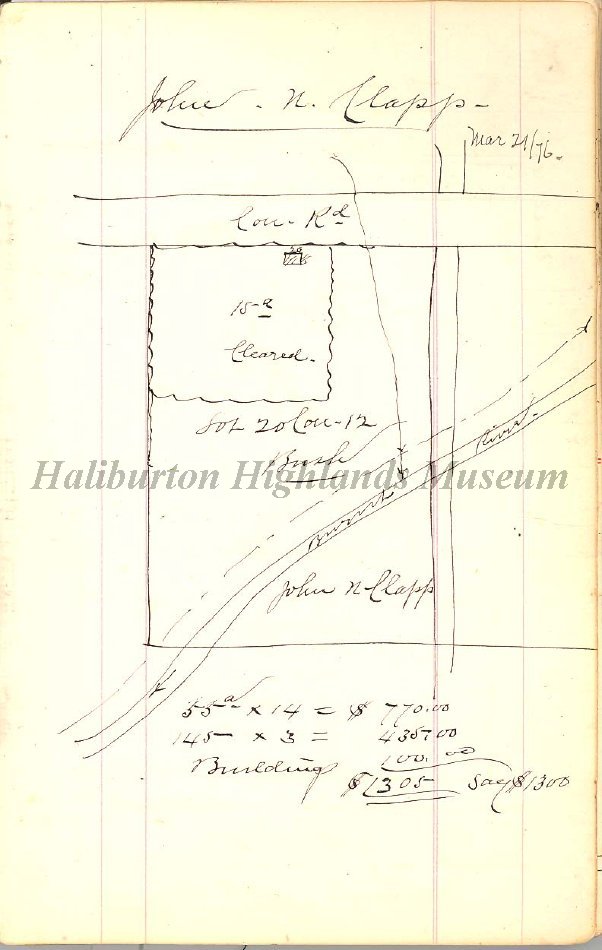 John - N. Clapp -
Mar 21/76.
Con - Rd
15 a
Cleared -
Lot 20 Con - 12
Bush
Haliburton Highlands Museum
Burnt River
John N Clapp
55 a x 14 = $ 770.00
145 x 3 = 435.00
Building 100.00
$1305 Say $1300